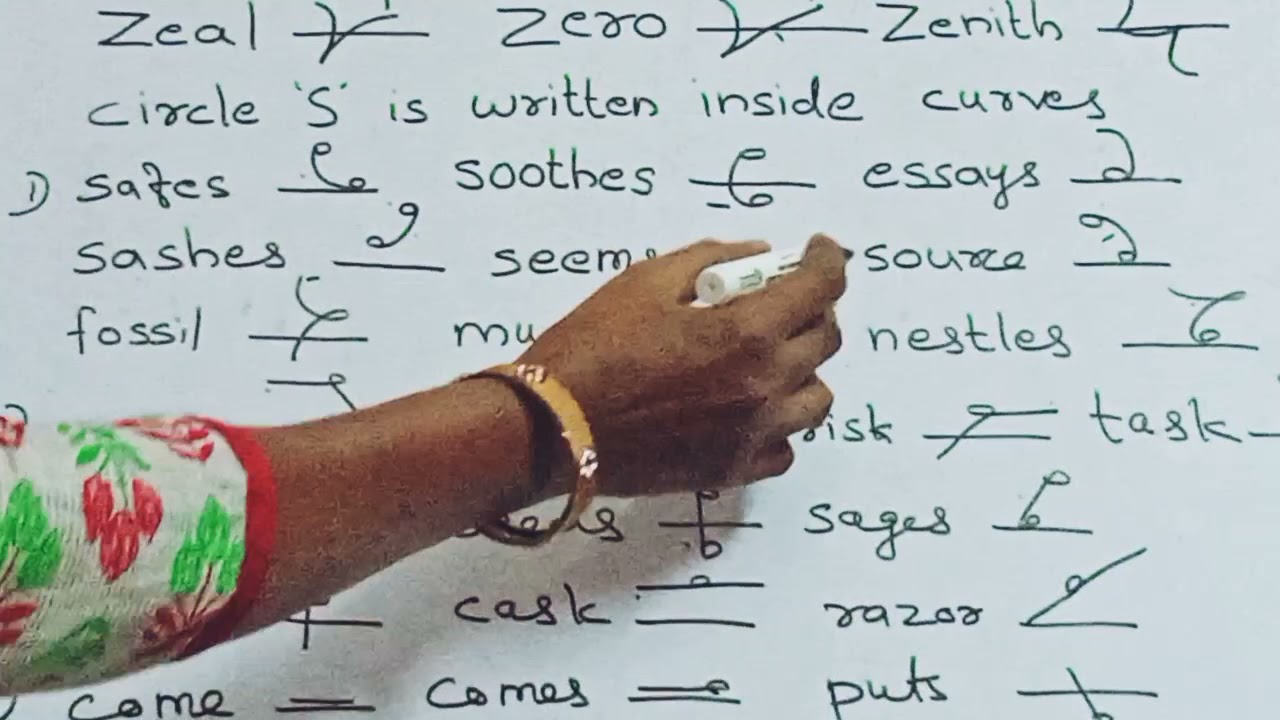 Zeal Zero Zenith
circle 'S' is written inside curves
1) safes soothes essays
sashes source
fossil nestles
risk task
sages
cask razor
come comes puts